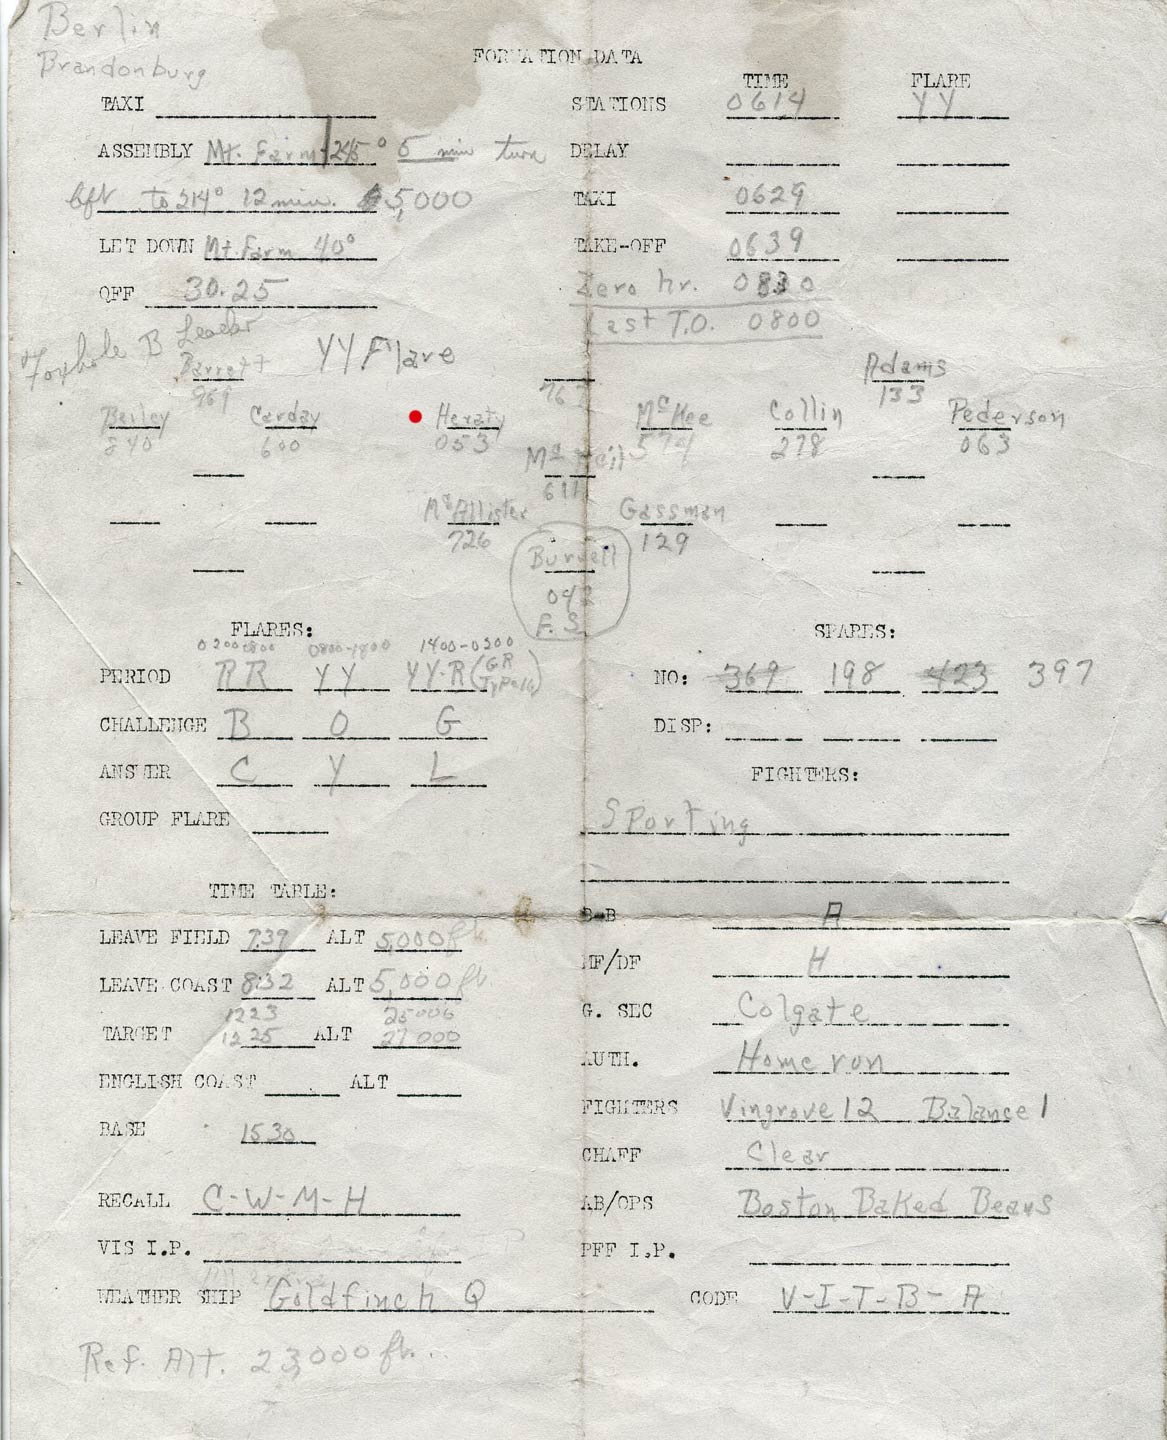 Berlin
Brandonburg
FORMATION DATA
TIME FLARE
TAXI STATIONS 0614 YY
ASSEMBLY Mt. Farm 245° 5 min turn DELAY
left to 214° 12 min. 5,000 TAXI 0629
LET DOWN Mt. Farm 40° TAKE-OFF 0639
QFF 30.25 Zero hr. 0830
Last T.O. 0800
Foxhole B Leader
YY Flare
Barrett Adams
969 767 133
Berley Carday Heraty McKee Collin Pederson
840 600 053 574 278 063
McNeil
611
McAllister Gassman
726 129
Burnell
042
F.S.
FLARES: SPARES:
0200-0800 0800-1400 1400-0200
PERIOD RR YY YY-R (GR NO: 369 198 423 397
CHALLENGE B O G DISP:
ANSWER C Y L FIGHTERS:
GROUP FLARE Sporting
TIME TABLE:
B-B A
LEAVE FIELD 739 ALT 5,000 ft.
MF/DF H
LEAVE COAST 8:32 ALT 5,000 ft.
G. SEC Colgate
1223 25000
TARGET 1225 ALT 27000
AUTH. Home run
ENGLISH COAST ALT
FIGHTERS Vingrove 12 Balance 1
BASE 1530
CHAFF Clear
RECALL C-W-M-H AB/OPS Boston Baked Beans
VIS I.P. PFF I.P.
WEATHER SHIP Goldfinch Q CODE V-I-T-B-A
Ref. Alt. 23,000 ft.